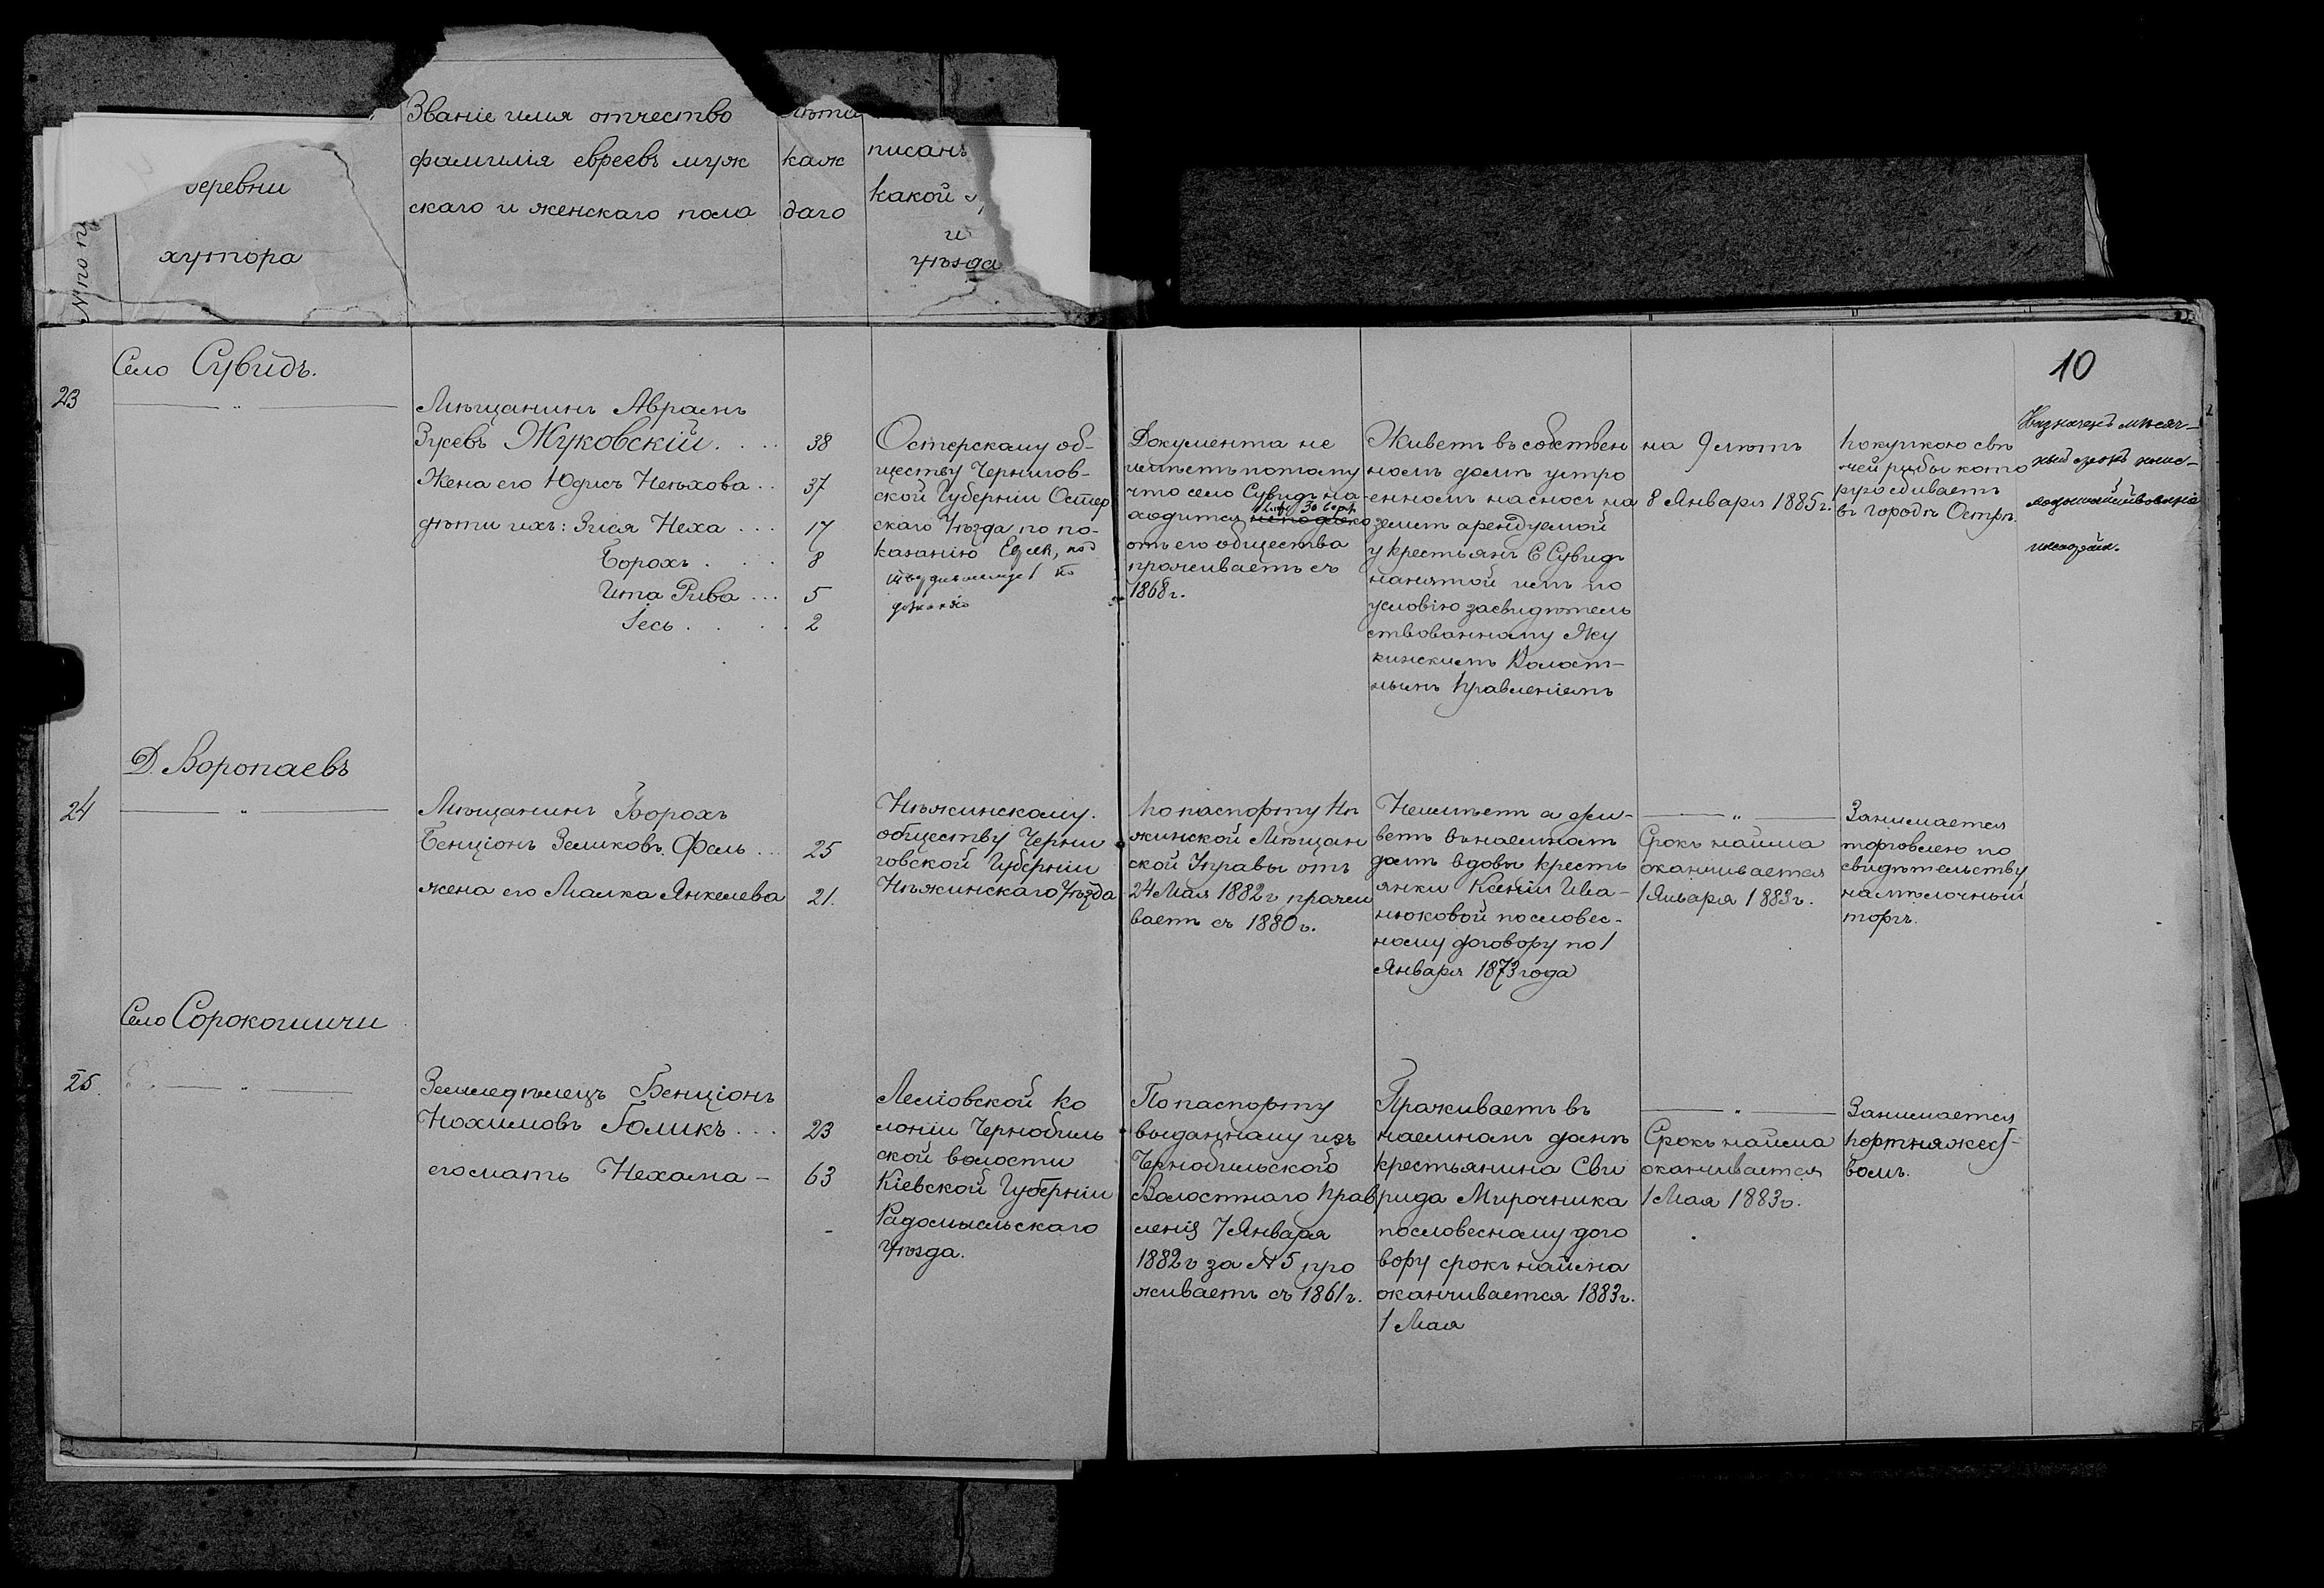 10
Званіе имя отчество
фамилія евреевъ муж
скаго и женскаго пола
каж
даго
писанъ
какой
и
уѣзда
деревни
хутора
Село Сувидъ.
23
Мѣщанинъ Авраамъ
Зусевъ Жуковскій 38
Жена его Юдисъ Неѣхова 37
дѣти ихъ: Элся Неха 17
Борохъ 8
Ита Рива 5
Іесь 2
Остерскому об-
ществу Чернигов-
ской Губерніи Остер
скаго Уѣзда по по-
казанію
Документа не
имѣетъ потому
что село Сувидъ на-
ходится 30 верс
отъ его общества
проживаетъ съ
1868 г.
Живетъ въ собствен
номъ домѣ устро
енномъ на сносъ на
землѣ арендуемой
у крестьянъ С Сувидъ
нанятой имъ по
условію засвидѣтель
ствованному Жу
кинскимъ Волост-
нымъ Правленіемъ
на 9 лѣтъ
8 Января 1885 г.
Покупкою свѣ
жей рыбы кото
рую сбиваетъ
въ городѣ Острѣ.
Назначенъ мѣсяч-
ный срокъ
Д. Воропаевъ
24
Мѣщанинъ Борохъ
Бенціонъ Зеликовъ Фель 25
жена его Малка Янкелева 21.
Нѣжинскому
обществу Черни
говской Губерніи
Нѣжинскаго Уѣзда
По паспорту Нѣ
жинской Мѣщан
ской Управы отъ
24 Мая 1882 г прожи
ваетъ съ 1880 г.
Неимѣетъ а жи-
ветъ въ наемномъ
домѣ вдовы кресть
янки Ксеніи Ива-
нюковой по словес-
ному договору по 1
Января 1873 года
Срокъ найма
оканчивается
1 Января 1883 г.
Занимается
торговлею по
свидѣтельству
на мелочный
торгъ.
Село Сорокошичи
25.
Земледѣлецъ Бенціонъ
Нохимовъ Голикъ 23
его мать Нехама - 63
Лесіовской ко
лоніи Чернобыль
ской волости
Кіевской Губерніи
Радомысльскаго
Уѣзда.
По паспорту
выданному изъ
Чернобыльского
Волостнаго Прав
ленія 7 Января
1882 г за № 5 про
живаетъ съ 1861 г.
Проживаетъ въ
наемномъ домѣ
крестьянина Сви
рида Мирочника
по словесному дого
вору срокъ найма
оканчивается 1883 г.
1 Мая
Срокъ найма
оканчивается
1 Мая 1883 г.
Занимается
портняжест-
вомъ.